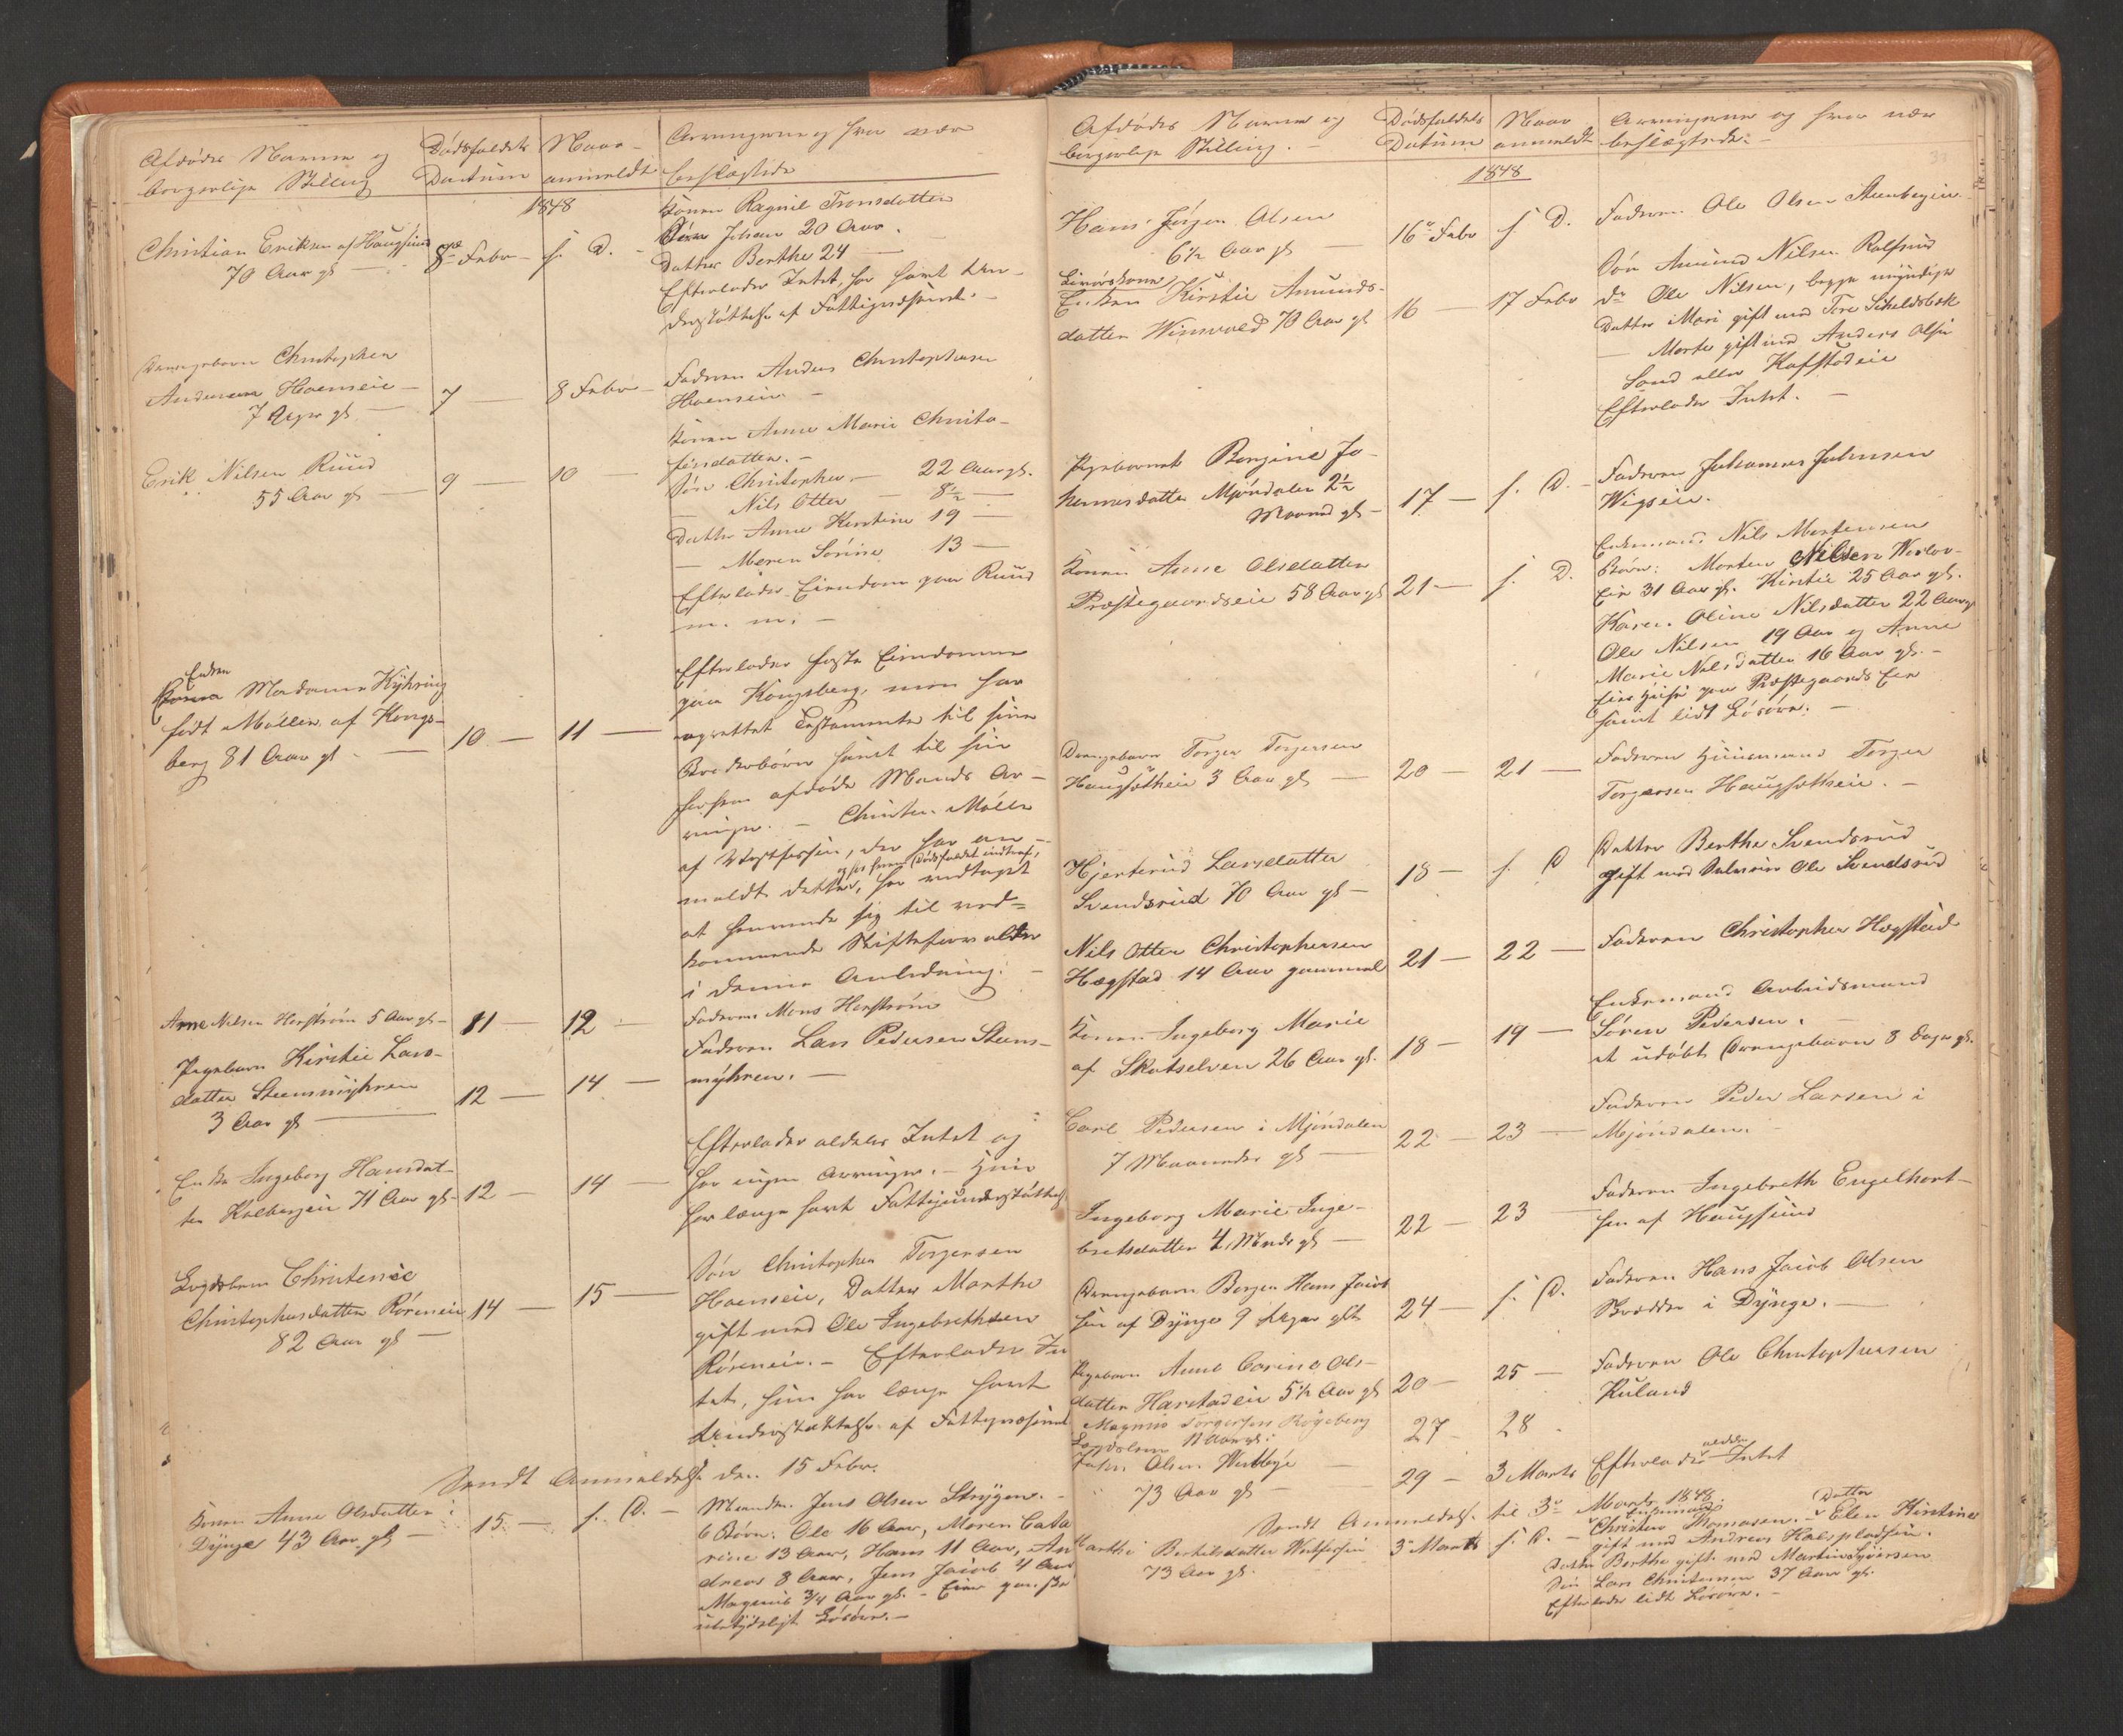 Afdødes Navn og
borgerlige Stilling
Dødsfaldets
Datum
Naar
anmeldt
Arvingerne og hvor nær
beslægtede
1848
Christian Eriksen af Haugsund
70 Aar gl
8de Febr
s. D.
Konen Ragnil Tronsdatter
Søn Johan 20 Aar.
Datter Berthe 24
Efterlader Intet, har havt Un-
derstøttelse af Fattigvæsenet.
Drengebarn Christopher
Andersen Hoenseie
7 Uger gl
7
8 Febr
Faderen Anders Christophersen
Hoenseie
Erik Nilsen Ruud
55 Aar gl
9
10
Konen Anne Marie Christo-
fersdatter.
Søn Christopher 22 Aar gl.
Nils Otter 8½
Datter Anne Kirstine 19
Maren Sørine 13
Efterlader Eiendom paa Ruud
m. m.
Enken
Madame Kyhring
født Møller af Kongs-
berg 81 Aar gl
10
11
Efterlader faste Eiendomme
paa Kongsberg, men har
oprettet Testamente til sine
Broderbørn samt til sin
afdøde Mands Ar-
vinger. Christen Møller
af Vestfossen, der har an-
og hos hvem Dødsfaldet indtraf,
meldt dette, har vedtaget
at henvende sig til ved-
kommende Skifteforvalter
i denne Anledning.
Arne Nilsen Horstrøm 5 Aar gl
11
12
Faderen Mons Horstrøm
Pigebarn Kirstie Lars-
datter Steensmyhren
3 Aar gl
12
14
Faderen Lars Pedersen Steens-
myhren.
Enke Ingeborg Hansdat-
ter Kolbergeie 71 Aar gl
12
14
Efterlader aldeles Intet og
har ingen Arvinger. Hun
har længe havt Fattigunderstøttelse
Lægdslem Christense
Christophersdatter Røreneie
82 Aar gl
14
15
Søn Christopher Torgersen
Hoenseie, Datter Marthe
gift med Ole Ingebrethsen
Røreneie. Efterlader In
tet, hun har længe havt
Understøttelse af Fattigvæsenet
Sendt Anmeldelse den 15 Febr.
Konen Anne Olsdatter i
Dynge 43 Aar gl
15
s. D.
Manden Jens Olsen Strygen.
6 Børn: Ole 16 Aar, Maren Catha
rine 13 Aar, Hans 11 Aar, An
dreas 8 Aar, Jens Jacob 4 Aar
Magnus 3/4 Aar gl.
ubetydeligt Løsøre.
Afdødes Navn og
borgerlige Stilling.
Dødsfaldets
Datum
Naar
anmeldt
Arvingerne og hvor nær
beslægtede
1848
Hans Jørgen Olsen
6½ Aar gl
16de Febr
s. D.
Faderen Ole Olsen Steenbergeie
Enken Kirstie Amunds-
datter Winsvold 70 Aar gl
16
17 Febr
Søn Amund Nilsen Rolfsrud
do Ole Nilsen, begge myndige
Datter Mari gift med Tore Skeldsbæk
Marte gift med Anders Olsen
Sand eller Hafstadeie
Efterlader Intet.
Pigebarnet Bergine Jo-
hannesdatter Mjøndalen 2½
Maaned gl
17
s. D.
Faderen Johannes Johnsen
Wigseie.
Konen Anne Olsdatter
Præstegaardseie 58 Aar gl
21
s. D.
Enkemand Nils Mortensen
Børn: Morten Nilsen
Eie 31 Aar gl. Kirstie 25 Aar gl.
Karen Oline Nilsdatter 22 Aar gl
Ole Nilsen 19 Aar og Anne
Marie Nilsdatter 16 Aar gl.
Eier Huse paa Præstegaards Eie
samt lidt Løsøre.
Drengebarn Torger Torgersen
Haugsætheie 3 Aar gl
20
21
Faderen Huusmand Torger
Torgersen Haugsætheie.
Hjerterud Larsdatter
Svendsrud 70 Aar gl
18
s. D
Datter Berthe Svendsrud
gift med Selveier Ole Svendsrud
Nils Otter Christophersen
Hægstad 14 Aar gammel
21
22
Faderen Christopher Hægstad
Konen Ingeborg Marie
af Skotselven 26 Aar gl.
18
19
Enkemand Arbeidsmand
Søren Pedersen.
et udøbt Drengebarn 8 Dage gl.
Carl Pedersen i Mjøndalen
7 Maaneder gl
22
23
Faderen Peder Larsen i
Mjøndalen.
Ingeborg Marie Inge-
bretsdatter 4 Mnd gl
22
23
Faderen Ingebreth Engelhort-
sen af Haugsund
Drengebarn Borger Hans Jacob
sen af Dynge 9 Uger glt
24
s. D.
Faderen Hans Jacob Olsen
Skrædder i Dynge.
Pigebarn Anne Carine Ols-
datter Harstadeie 5½ Aar gl
20
25
Faderen Ole Christophersen
Ruland
Magnus Torgersen Røgeberg
Lægdslem 11 Aar gl:
27
28
John Olsen Westbye
73 Aar gl
29
3 Marts
aldeles
Efterlader Intet
Sendt Anmeldelse til 3de Marts 1848.
Marthe Bertelsdatter Westfossen
73 Aar gl.
3de Marts
s. D.
Enkemand:
Datter
Christen Thomasen. Elen Kirstine
gift med Andreas Kalspladsen.
Datter Berthe gift med Martin Syversen
Søn Lars Christensen 37 Aar gl.
Efterlader lidt Løsøre.